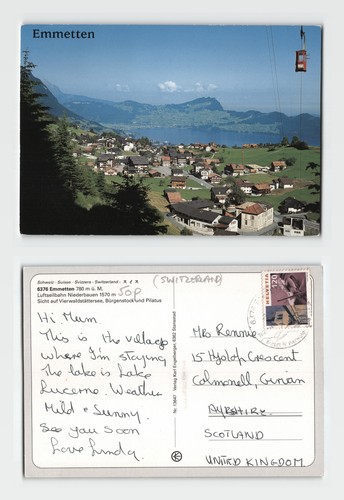 Emmetten
Schweiz · Suisse · Svizzera · Switzerland
(SWITZERLAND)
6376 Emmetten 780 m ü. M.
Luftseilbahn Niederbauen 1570 m
Sicht auf Vierwaldstättersee, Bürgenstock und Pilatus
50p
Hi Mum.
This is the village
where I'm staying
The lake is Lake
Lucerne. Weather
Mild & Sunny.
See you soon
Love Linda
Verlag Karl Engelberger, 6362 Stansstad
Nr. 13647
HELVETIA
120
Mrs Rennie
15 Hyslop Crescent
Colmonell, Girvan
AYRSHIRE.
SCOTLAND
UNITED KINGDOM